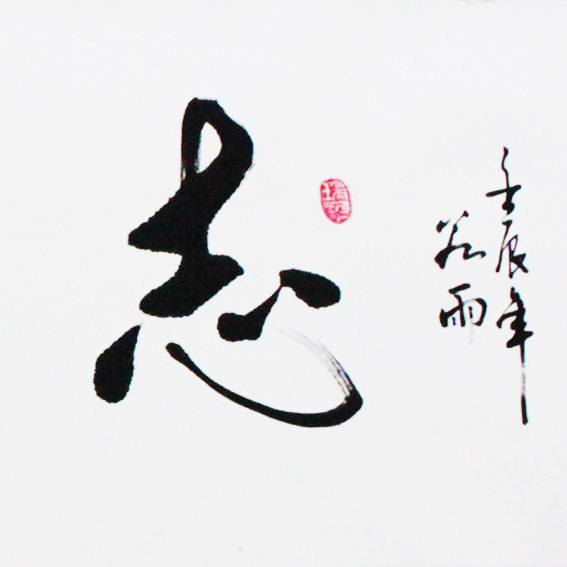 志
壬辰年
谷雨